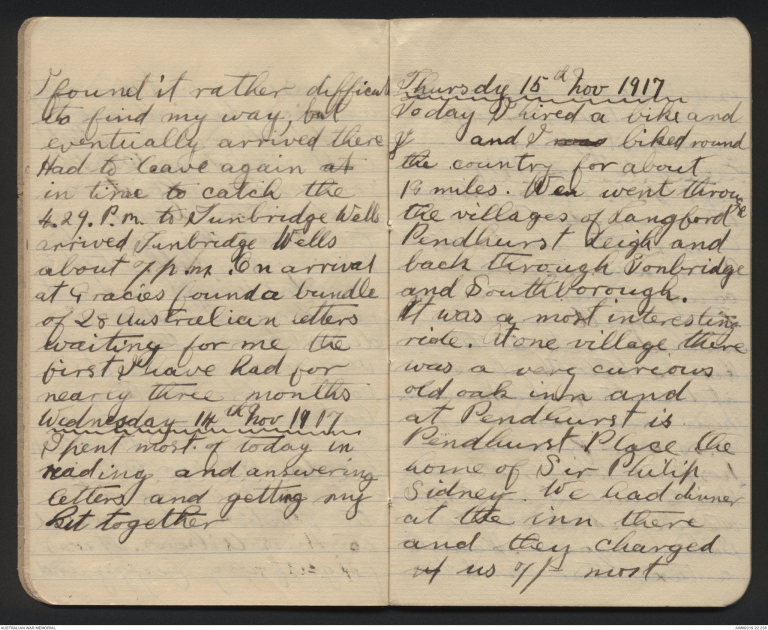 I found it rather difficult
to find my way, but
eventually arrived there
Had to leave again at
in time to catch the
4.29. P.m. to Tunbridge Wells
arrived Tunbridge Wells
about 7 p m. On arrival
at Gracies found a bundle
of 28 Australian letters
waiting for me the
first I have had for
nearly three months
Wednesday 14th Nov 1917
I spent most of today in
reading and answering
letters and getting my
kit together
Thursdy 15th Nov 1917
Today I hired a bike and
J and I was biked round
the country for about
18 miles. We went through
the villages of Langford
Pendhurst Leigh and
back through Tonbridge
and Southborough.
It was a most interesting
ride. At one village there
was a very curious
old oak inn and
at Pendhurst is
Pendhurst Place the
home of Sir Philip
Sidney. We had dinner
at the inn there
and they charged
us 7/- most
AUSTRALIAN WAR MEMORIAL